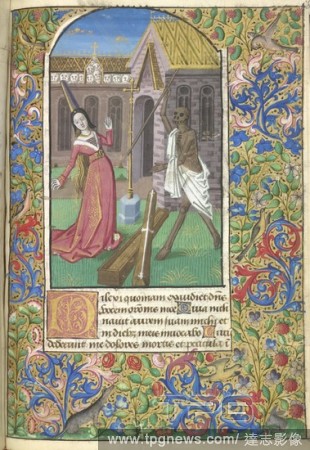 Dilexi quoniam exaudiet dn̄s
vocem orōnis mee Quia incli
navit aurem suam michi et
in diebus meis invocabo Cir
dederunt me dolores mortis et pericula i
www.tpgnews.com/ 達志影像